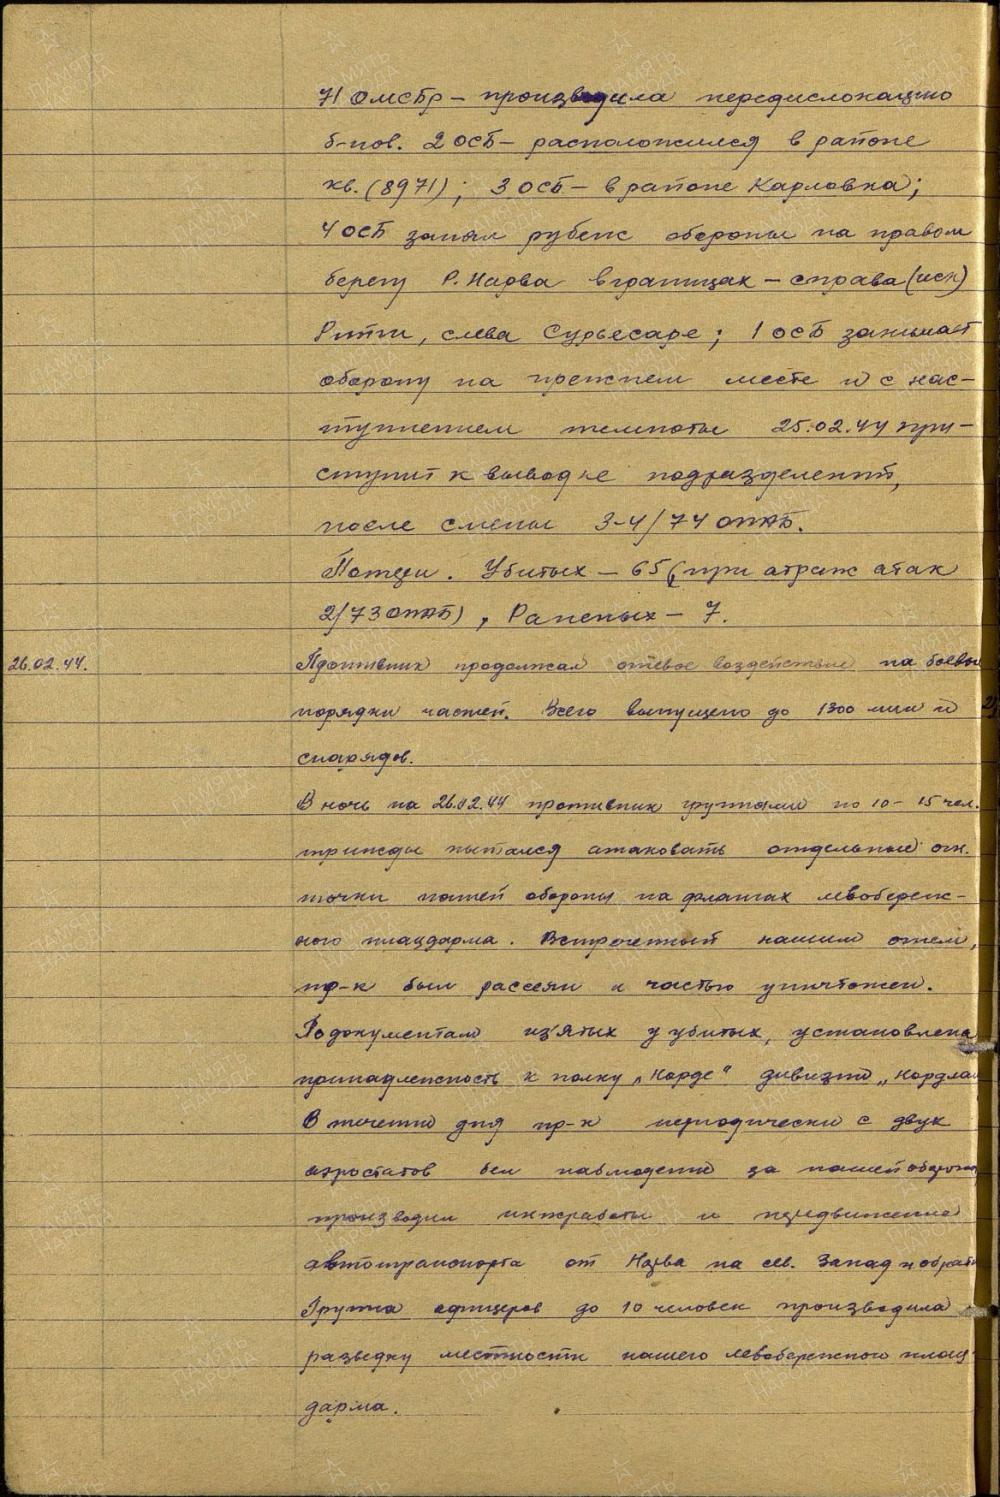 71 ОМСБр – производила передислокацию
б-нов. 2 ОСБ – расположился в районе
кв. (8971); 3 ОСБ – в районе Карловка;
4 ОСБ занял рубеж обороны на правом
берегу р. Нарва в границах – справа (иск)
Ритти, слева Сурьесаре; 1 ОСБ занимает
оборону на прежнем месте и с нас-
туплением темноты 25.02.44 при-
ступит к выводке подразделений,
после смены 3-4/74 ОПАБ.
Потери. Убитых – 65 (при отраж атак
2/73 ОПАБ), Раненых – 7.
26.02.44.
Противник продолжал огневое воздействие на боевы
порядки частей. Всего выпущено до 1300 мин и
снарядов.
В ночь на 26.02.44 противник группами по 10 – 15 чел.
трижды пытался атаковать отдельные огн.
точки нашей обороны на флангах левобереж-
ного плацдарма. Встреченный нашим огнем,
пр-к был рассеян и частью уничтожен.
По документам из'ятых у убитых, установлена
принадлежность к полку „Норде" дивизии „Нордлан
В течении дня пр-к периодически с двух
аэростатов вел наблюдение за нашей обороной
производил инжработы и передвижение
автотранспорта от Нарва на сев. Запад и обратн
Группа офицеров до 10 человек производила
разведку местности нашего левобережного плац-
дарма.
ПАМЯТЬ НАРОДА